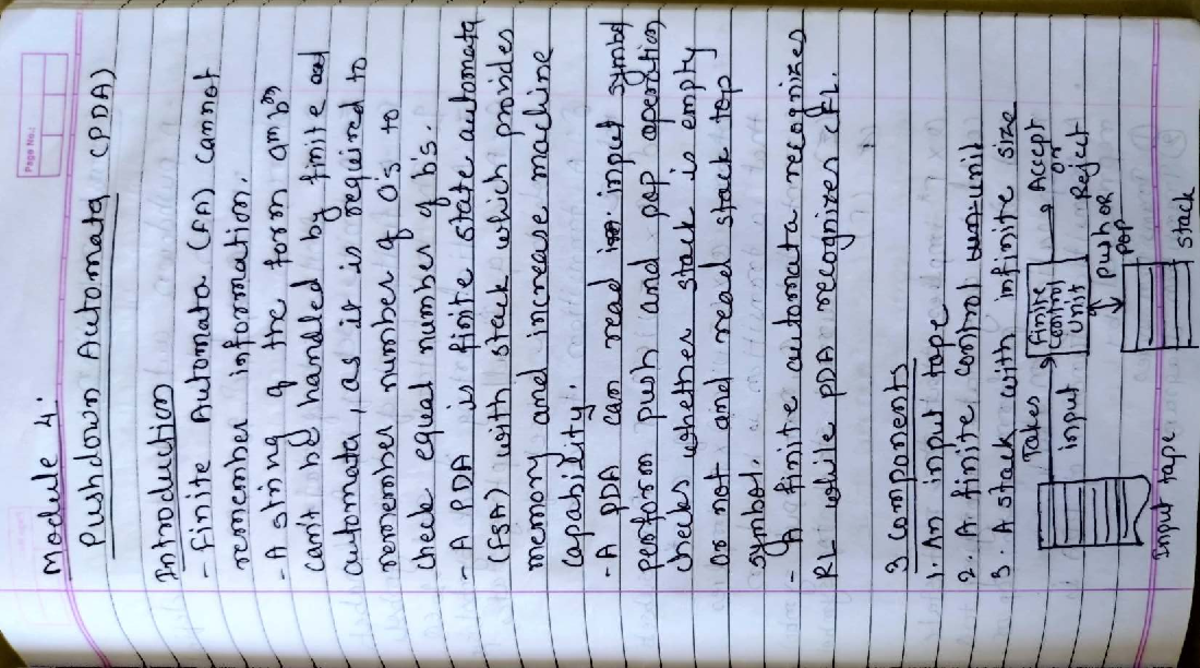 Page No.:
Module 4.
Pushdown Automata (PDA)
Introduction
- Finite Automata (FA) cannot
remember information.
- A string of the form a^n b^n
can't be handled by finite
automata, as it is required to
remember number of a's to
check equal number of b's.
- A PDA is finite state automata
(FSA) with stack which provides
memory and increase machine
capability.
- A PDA can read input symbol
perform push and pop operation,
checks whether stack is empty
or not and read stack top
symbol.
- A finite automata recognizes
RL while PDA recognizes CFL.
3 components
1. An input tape
2. A finite control unit
3. A stack with infinite size
Takes
input
Finite
control
unit
Accept
or
Reject
Push OR
Pop
Input tape
stack